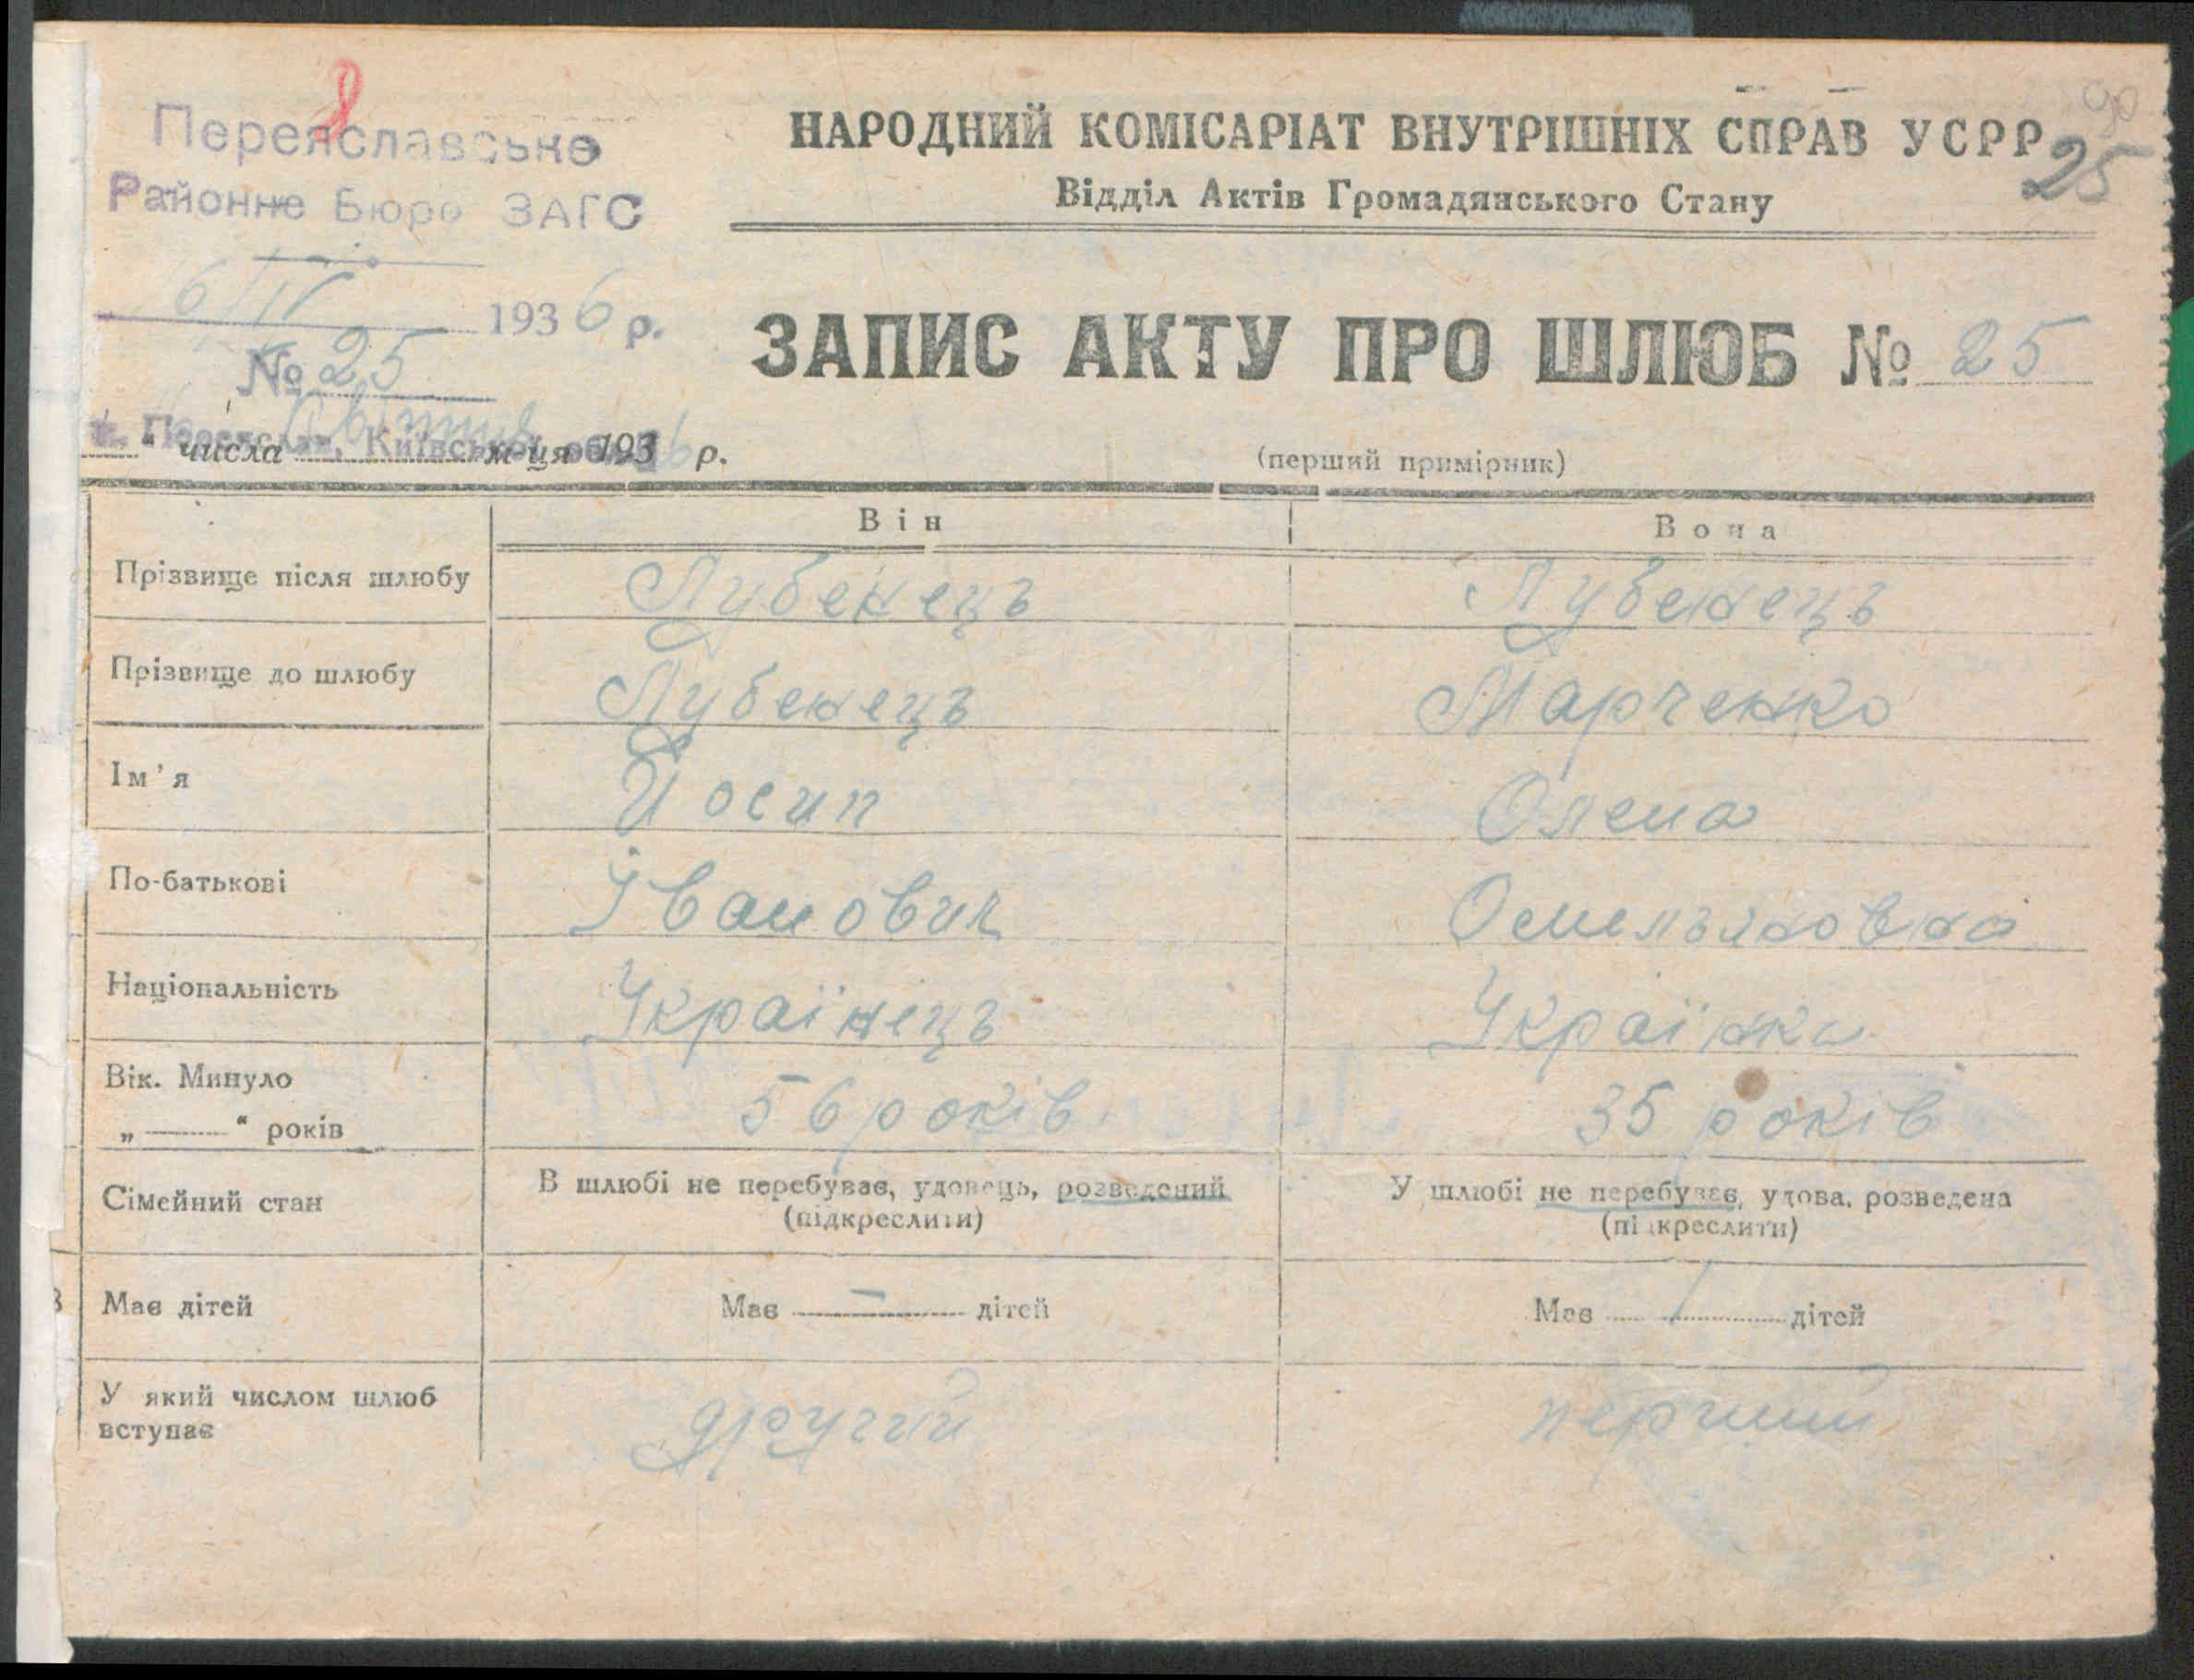 90
Переяславське
Районне Бюро ЗАГС
НАРОДНИЙ КОМІСАРІАТ ВНУТРІШНІХ СПРАВ УСРР
25
Відділ Актів Громадянського Стану
6/IV 1936 р.
№ 25
ЗАПИС АКТУ ПРО ШЛЮБ № 25
м. Переяслав, Київської обл.
" числа м-ця 1936 р.
(перший примірник)
Він Вона
Прізвище після шлюбу Лубенець Лубенець
Прізвище до шлюбу Лубенець Марченко
Ім'я Йосип Олена
По-батькові Іванович Омельяновна
Національність Українець Українка
Вік. Минуло
„ " років 56 років 35 років
Сімейний стан В шлюбі не перебуває, удовець, розведений У шлюбі не перебуває, удова, розведена
(підкреслити) (підкреслити)
Має дітей Має — дітей Має / дітей
У який числом шлюб
вступає другий перший